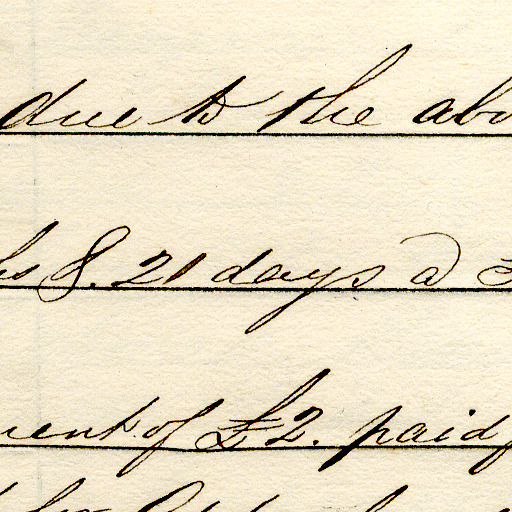 due to the abo
hs & 21 days @
ment of £2. paid